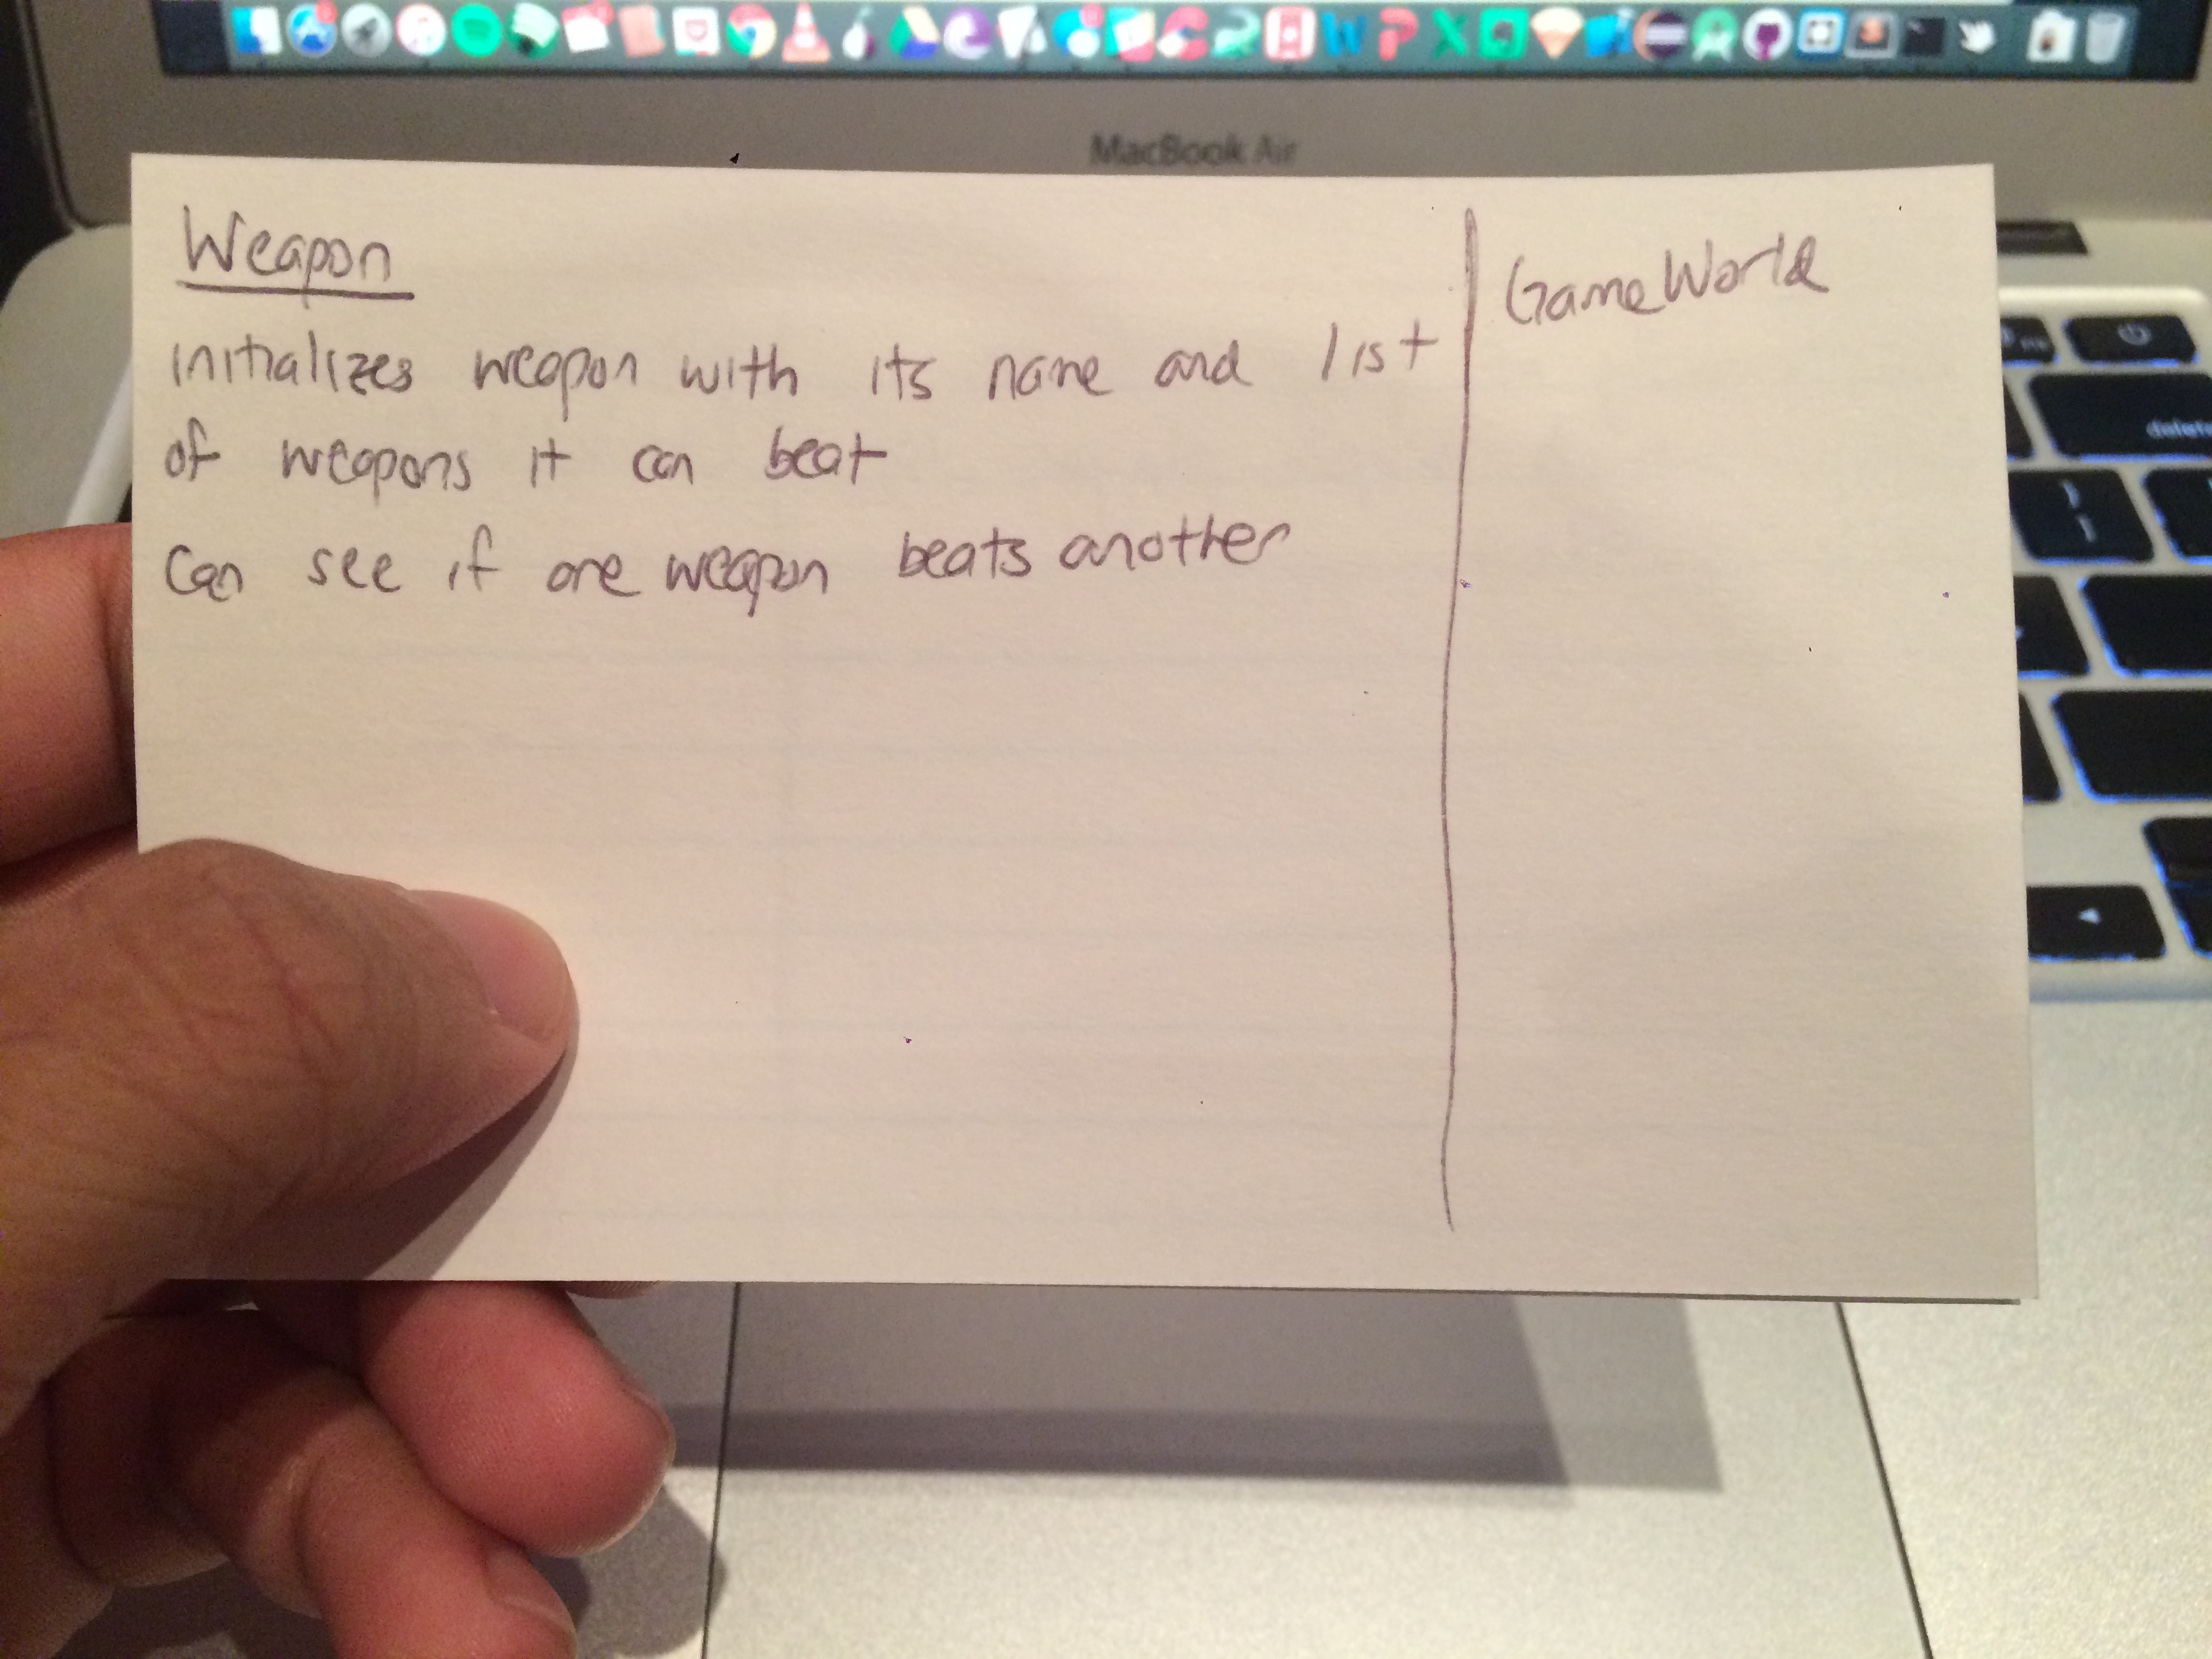 MacBook Air
Weapon
initializes weapon with its name and list
of weapons it can beat
can see if one weapon beats another
GameWorld
delete